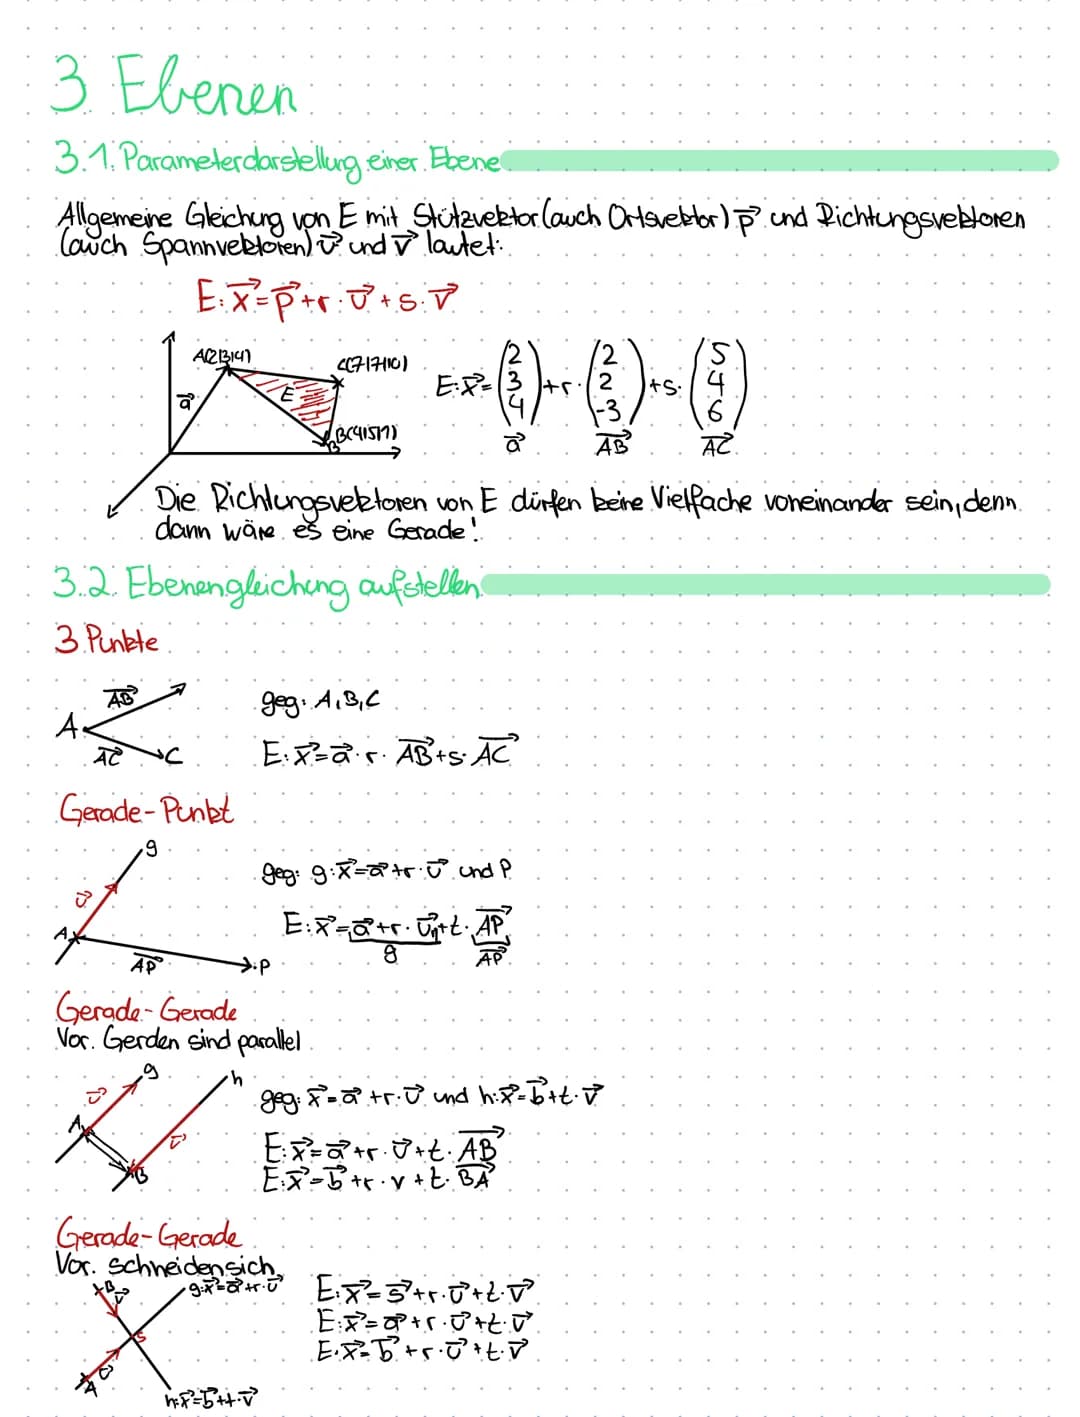 3 Ebenen
3.1. Parameterdarstellung einer Ebene
Allgemeine Gleichung von E mit Stützvektor (auch Ortsvektor) p⃗ und Richtungsvektoren
(auch Spannvektoren) u⃗ und v⃗ lautet:
E: x⃗ = p⃗ + r · u⃗ + s · v⃗
A(2|3|4)
C(7|7|10)
a⃗
E
B(4|5|1)
B
E: x⃗ = (2 3 4) + r · (2 2 -3) + s · (5 4 6)
a⃗ AB⃗ AC⃗
Die Richtungsvektoren von E dürfen keine Vielfache voneinander sein, denn
dann wäre es eine Gerade!
3.2. Ebenengleichung aufstellen
3 Punkte
AB⃗
A
AC⃗ C
geg: A, B, C
E: x⃗ = a⃗ · r · AB⃗ + s · AC⃗
Gerade-Punkt
g
u⃗
A
AP⃗
P
geg: g: x⃗ = a⃗ + r · u⃗ und P
E: x⃗ = a⃗ + r · u⃗ + t · AP⃗
g AP⃗
Gerade-Gerade
Vor. Gerden sind parallel
g
h
u⃗
A
v⃗
B
geg: x⃗ = a⃗ + r · u⃗ und h: x⃗ = b⃗ + t · v⃗
E: x⃗ = a⃗ + r · u⃗ + t · AB⃗
E: x⃗ = b⃗ + r · v + t · BA⃗
Gerade-Gerade
Vor. schneiden sich
B
v⃗
g: x⃗ = a⃗ + r · u⃗
S
u⃗
A
h: x⃗ = b⃗ + t · v⃗
E: x⃗ = s⃗ + r · u⃗ + t · v⃗
E: x⃗ = a⃗ + r · u⃗ + t · v⃗
E: x⃗ = b⃗ + r · u⃗ + t · v⃗